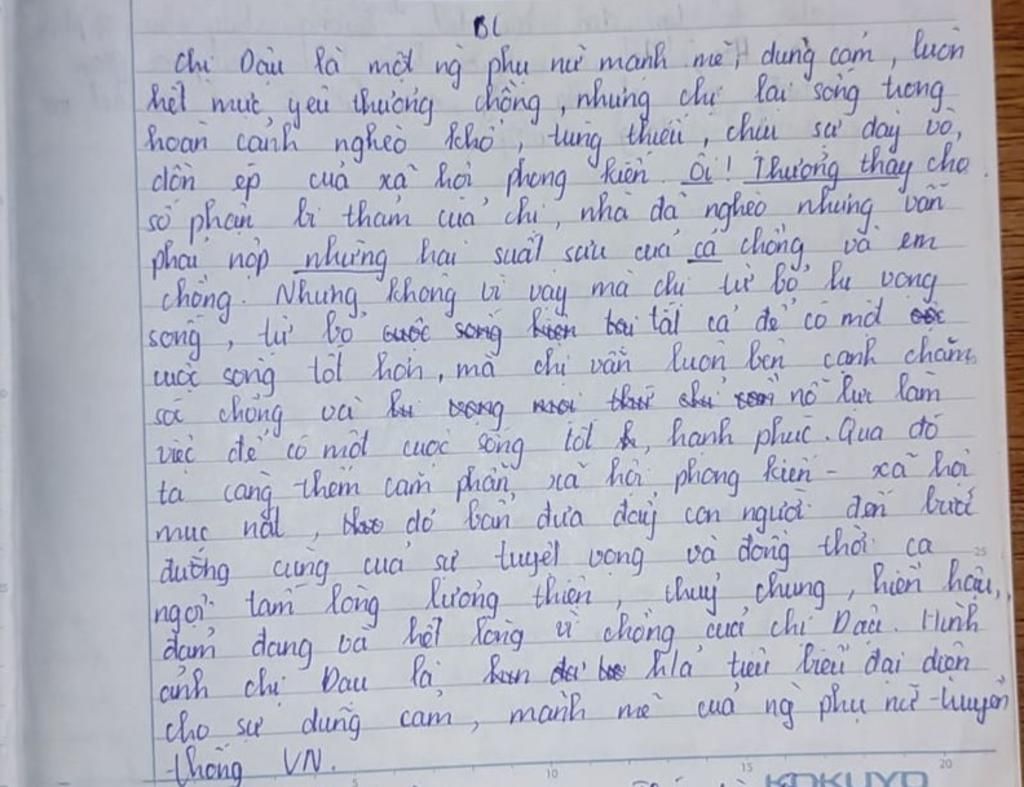 BL
Chị Dậu là một ng phụ nữ mạnh mẽ, dũng cảm, luôn
hết mực yêu thương chồng, nhưng chị lại sống trong
hoàn cảnh nghèo khó, túng thiếu, chịu sự dày vò,
dồn ép của xã hội phong kiến. Ôi! Thương thay cho
số phận bi thảm của chị, nhà đã nghèo nhưng vẫn
phải nộp những hai suất sưu của cả chồng và em
chồng. Nhưng không vì vậy mà chị từ bỏ hi vọng
sống, từ bỏ cuộc sống tất cả để có một
cuộc sống tốt hơn, mà chị vẫn luôn bên cạnh chăm
sóc chồng và hi vọng nỗ lực làm
việc để có một cuộc sống tốt, hạnh phúc. Qua đó
ta càng thêm căm phẫn xã hội phong kiến - xã hội
mục nát, dơ bẩn đưa đẩy con người đến bước
đường cùng của sự tuyệt vọng và đồng thời ca
ngợi tấm lòng lương thiện, thuỷ chung, hiền hậu,
đảm đang và hết lòng vì chồng của chị Dậu. Hình
ảnh chị Dậu là h/ả tiêu biểu đại diện
cho sự dũng cảm, mạnh mẽ của ng phụ nữ truyền
thống VN.
5 10 15 20
25
KOKUYO